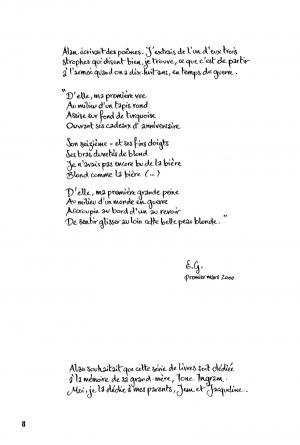 Alan écrivait des poèmes. J'extrais de l'un d'eux trois
strophes qui disent bien, je trouve, ce que c'est de partir
à l'armée quand on a dix-huit ans, en temps de guerre.
"D'elle, ma première vue
Au milieu d'un tapis rond
Assise sur fond de turquoise
Ouvrant ses cadeaux d'anniversaire
Son seizième - et ses fins doigts
Ses bras duvetés de blond
Je n'avais pas encore bu de la bière
Blond comme la bière (...)
D'elle, ma première grande peine
Au milieu d'un monde en guerre
Accroupie au bord d'un au revoir
De sentir glisser au loin cette belle peau blonde."
E.G.
premier mars 2000
Alan souhaitait que cette série de livres soit dédiée
à la mémoire de sa grand-mère, Ione Ingram.
Moi, je la dédie à mes parents, Jean et Jacqueline.
8